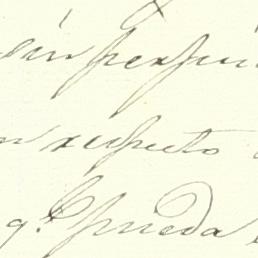 sin perjui
n respecto
q.e pueda